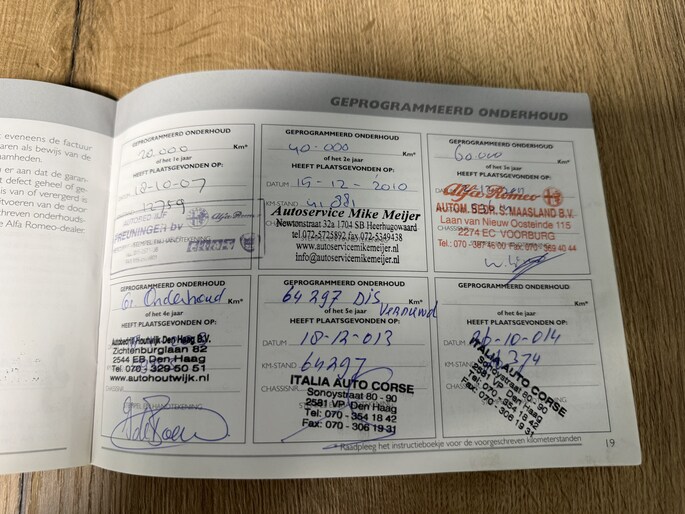 GEPROGRAMMEERD ONDERHOUD
eveneens de factuur
aren als bewijs van de
er aan dat de garan-
defect geheel of ge-
is van of verergerd is
itvoeren van de door
ven onderhouds-
e Alfa Romeo-dealer.
GEPROGRAMMEERD ONDERHOUD
20.000 Km*
of het 1e jaar
HEEFT PLAATSGEVONDEN OP:
DATUM 18-10-07
12759
PREUNINGEN BV
GEPROGRAMMEERD ONDERHOUD
40.000 Km*
of het 2e jaar
HEEFT PLAATSGEVONDEN OP:
DATUM 15-12-2010
KM-STAND 41.881
Autoservice Mike Meijer
Newtonstraat 32a 1704 SB Heerhugowaard
tel.072-5725892 fax.072-5349438
www.autoservicemikemeijer.nl
info@autoservicemikemeijer.nl
GEPROGRAMMEERD ONDERHOUD
60.000 Km*
of het 5e jaar
HEEFT PLAATSGEVONDEN OP:
DATUM
Alfa Romeo
AUTOM. BEDR. S. MAASLAND B.V.
Laan van Nieuw Oosteinde 115
2274 EC VOORBURG
Tel.: 070 - 387 46 00 Fax: 070 - 369 40 44
Onderhoud Km*
of het 4e jaar
HEEFT PLAATSGEVONDEN OP:
Autobedrijf Houtwijk Den Haag B.V.
Zichtenburglaan 82
2544 EB Den Haag
Tel. 070 - 329 50 51
www.autohoutwijk.nl
64297 DIS
Vernieuwd
Km*
of het 5e jaar
HEEFT PLAATSGEVONDEN OP:
DATUM 18-12-013
KM-STAND 64297
CHASSISNR.
ITALIA AUTO CORSE
Sonoystraat 80 - 90
2581 VP Den Haag
Tel: 070 - 354 18 42
Fax: 070 - 306 19 31
GEPROGRAMMEERD ONDERHOUD
Km*
of het 6e jaar
HEEFT PLAATSGEVONDEN OP:
DATUM 26-10-014
KM-STAND 374
CHASSISNR.
ITALIA AUTO CORSE
Sonoystraat 80 - 90
2581 VP Den Haag
Tel: 070 - 354 18 42
Fax: 070 - 306 19 31
* Raadpleeg het instructieboekje voor de voorgeschreven kilometerstanden
19